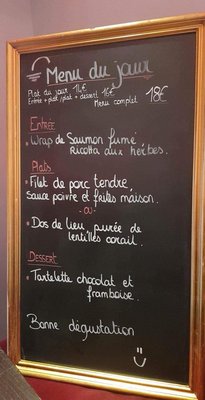 Menu du jour
Plat du jour 14€
Entrée + plat / plat + dessert 16€
Menu complet 18€
Entrée
• Wrap de Saumon fumé
Ricotta aux herbes.
Plats
• Filet de porc tendre,
Sauce poivre et frites maison.
- ou -
• Dos de lieu, purée de
lentilles corail.
Dessert
• Tartelette chocolat et
framboise.
Bonne dégustation